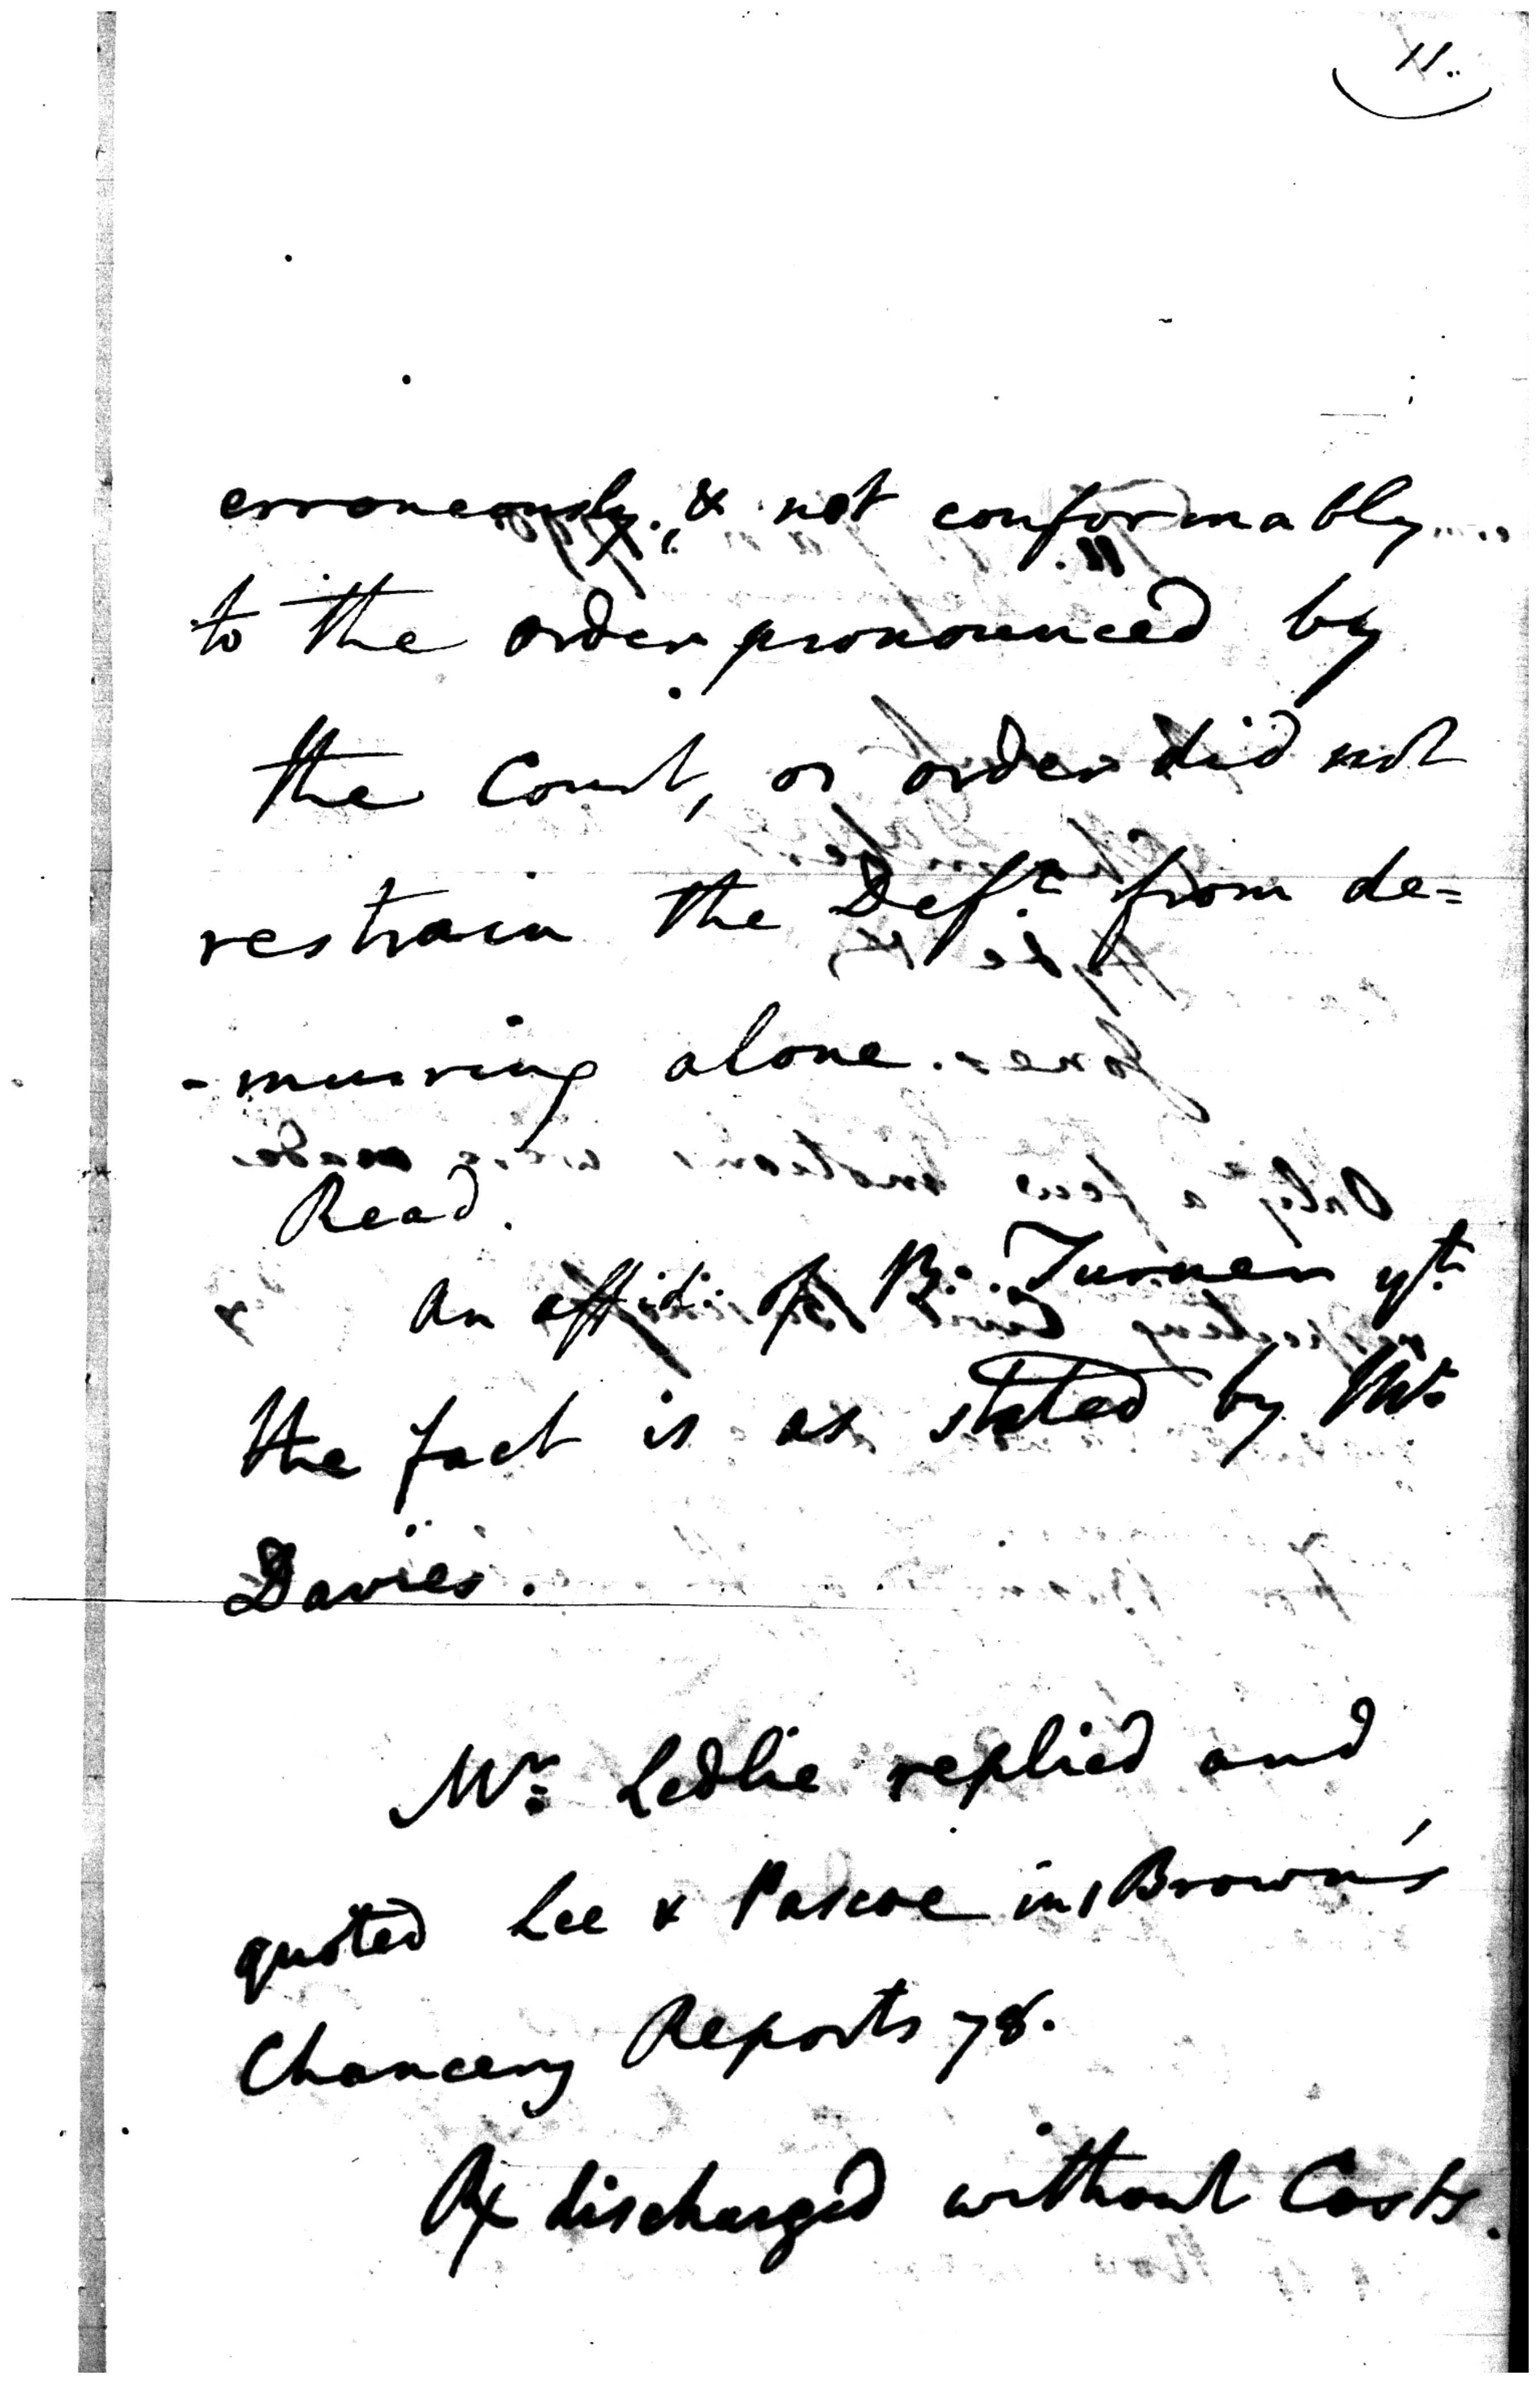 11.
erroneously, & not conformably
to the order pronounced by
the Court, or order did not
restrain the Deft from de=
-murring alone.
Read.
An affidt: of B. Turner yt.
the fact is as stated by Mr.
Davies.
Mr: Ledlie replied and
quoted Lee & Pascoe in 1 Brown's
Chancery Reports 78.
Rx discharged without Costs.